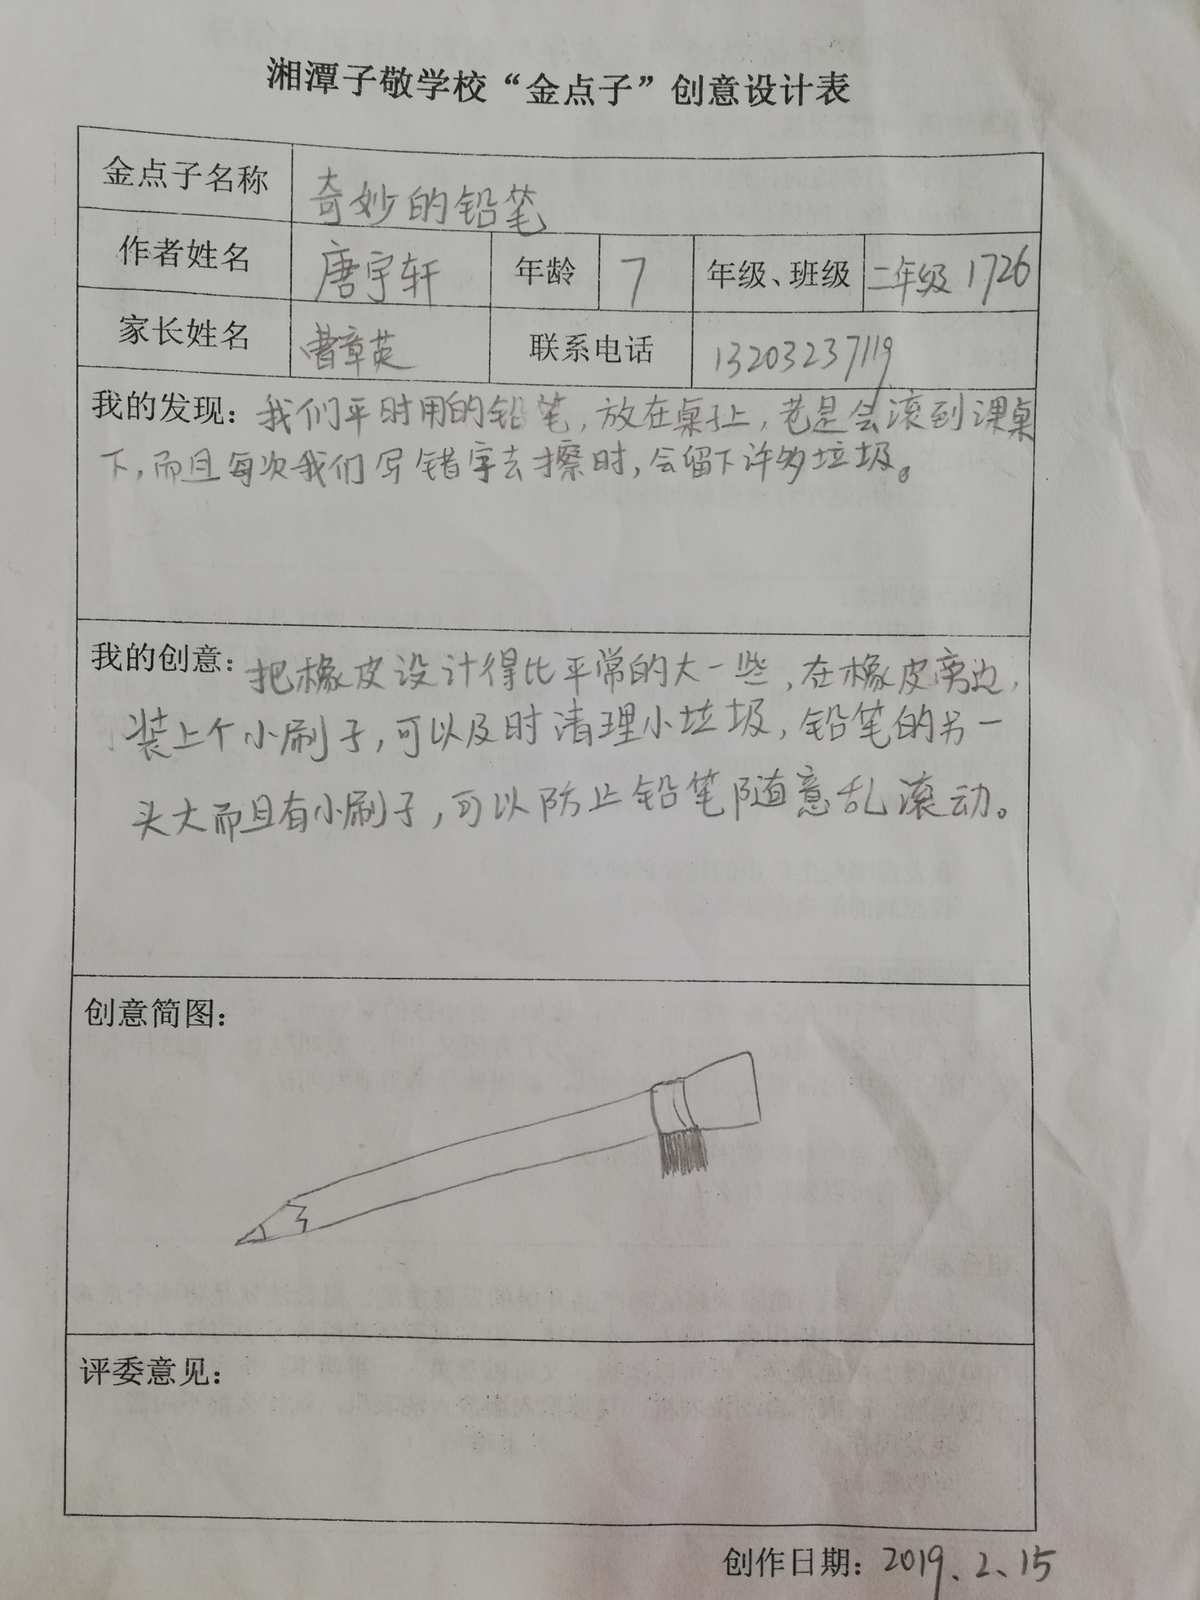 湘潭子敬学校“金点子”创意设计表
金点子名称 奇妙的铅笔
作者姓名 唐宇轩 年龄 7 年级、班级 二年级 1726
家长姓名 曹章英 联系电话 13203237119
我的发现：我们平时用的铅笔，放在桌子上，老是会滚到课桌
下，而且每次我们写错字去擦时，会留下许多垃圾。
我的创意：把橡皮设计得比平常的大一些，在橡皮旁边，
装上个小刷子，可以及时清理小垃圾，铅笔的另一
头大而且有小刷子，可以防止铅笔随意乱滚动。
创意简图：
评委意见：
创作日期：2019.2.15